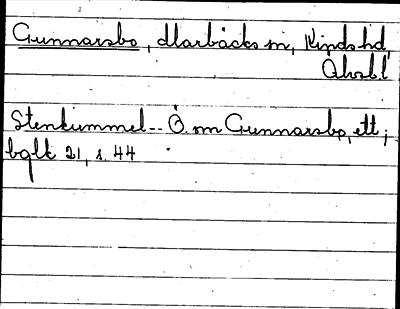 Gunnarsbo, Marbäcks sn, Kinds hd,
Älvsb. l
Stenkummel -- Ö. om Gunnarsbo, ett;
bglt 21, s. 44